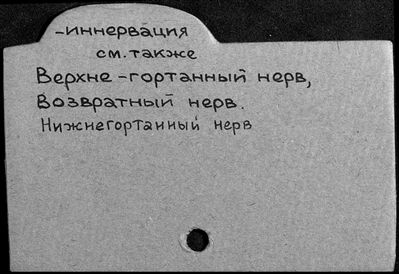 -иннервация
см. также
Верхне-гортанный нерв,
Возвратный нерв.
Нижнегортанный нерв